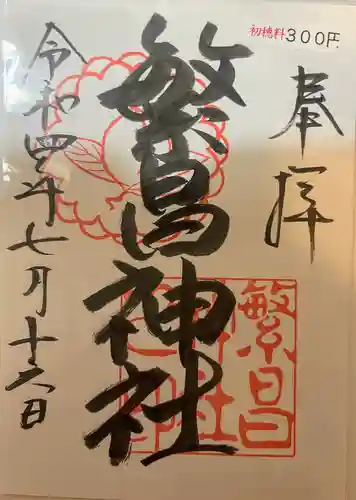 初穂料300円
奉拝
繁昌神社
繁昌
令和四年七月十六日